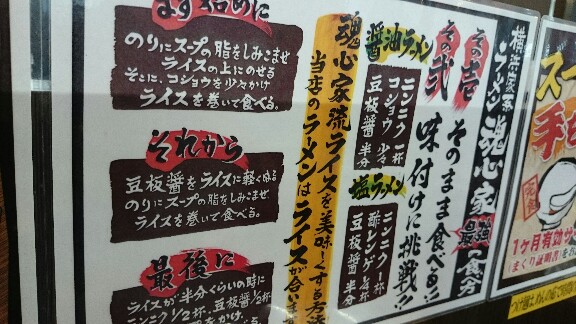 横浜家系ラーメン魂心家 最強の食べ方
その壱 そのまま食べる!!
その弐 味付けに挑戦!!
醤油ラーメン
ニンニク 一杯
コショウ 少々
豆板醤 半分
塩ラーメン
ニンニク 一杯
酢レンゲ 4杯
豆板醤 半分
魂心家流ライスを美味しくする方法
当店のラーメンはライスが合います
まず始めに
のりにスープの脂をしみこませ
ライスの上にのせる
そこに、コショウを少々かけ
ライスを巻いて食べる。
それから
豆板醤をライスに軽くぬる
のりにスープの脂をしみこませ
ライスを巻いて食べる。
最後に
ライスが半分くらいの時に
ニンニク1/2杯、豆板醤1/2杯
をかけ、
スー
手
1ヶ月有効サ